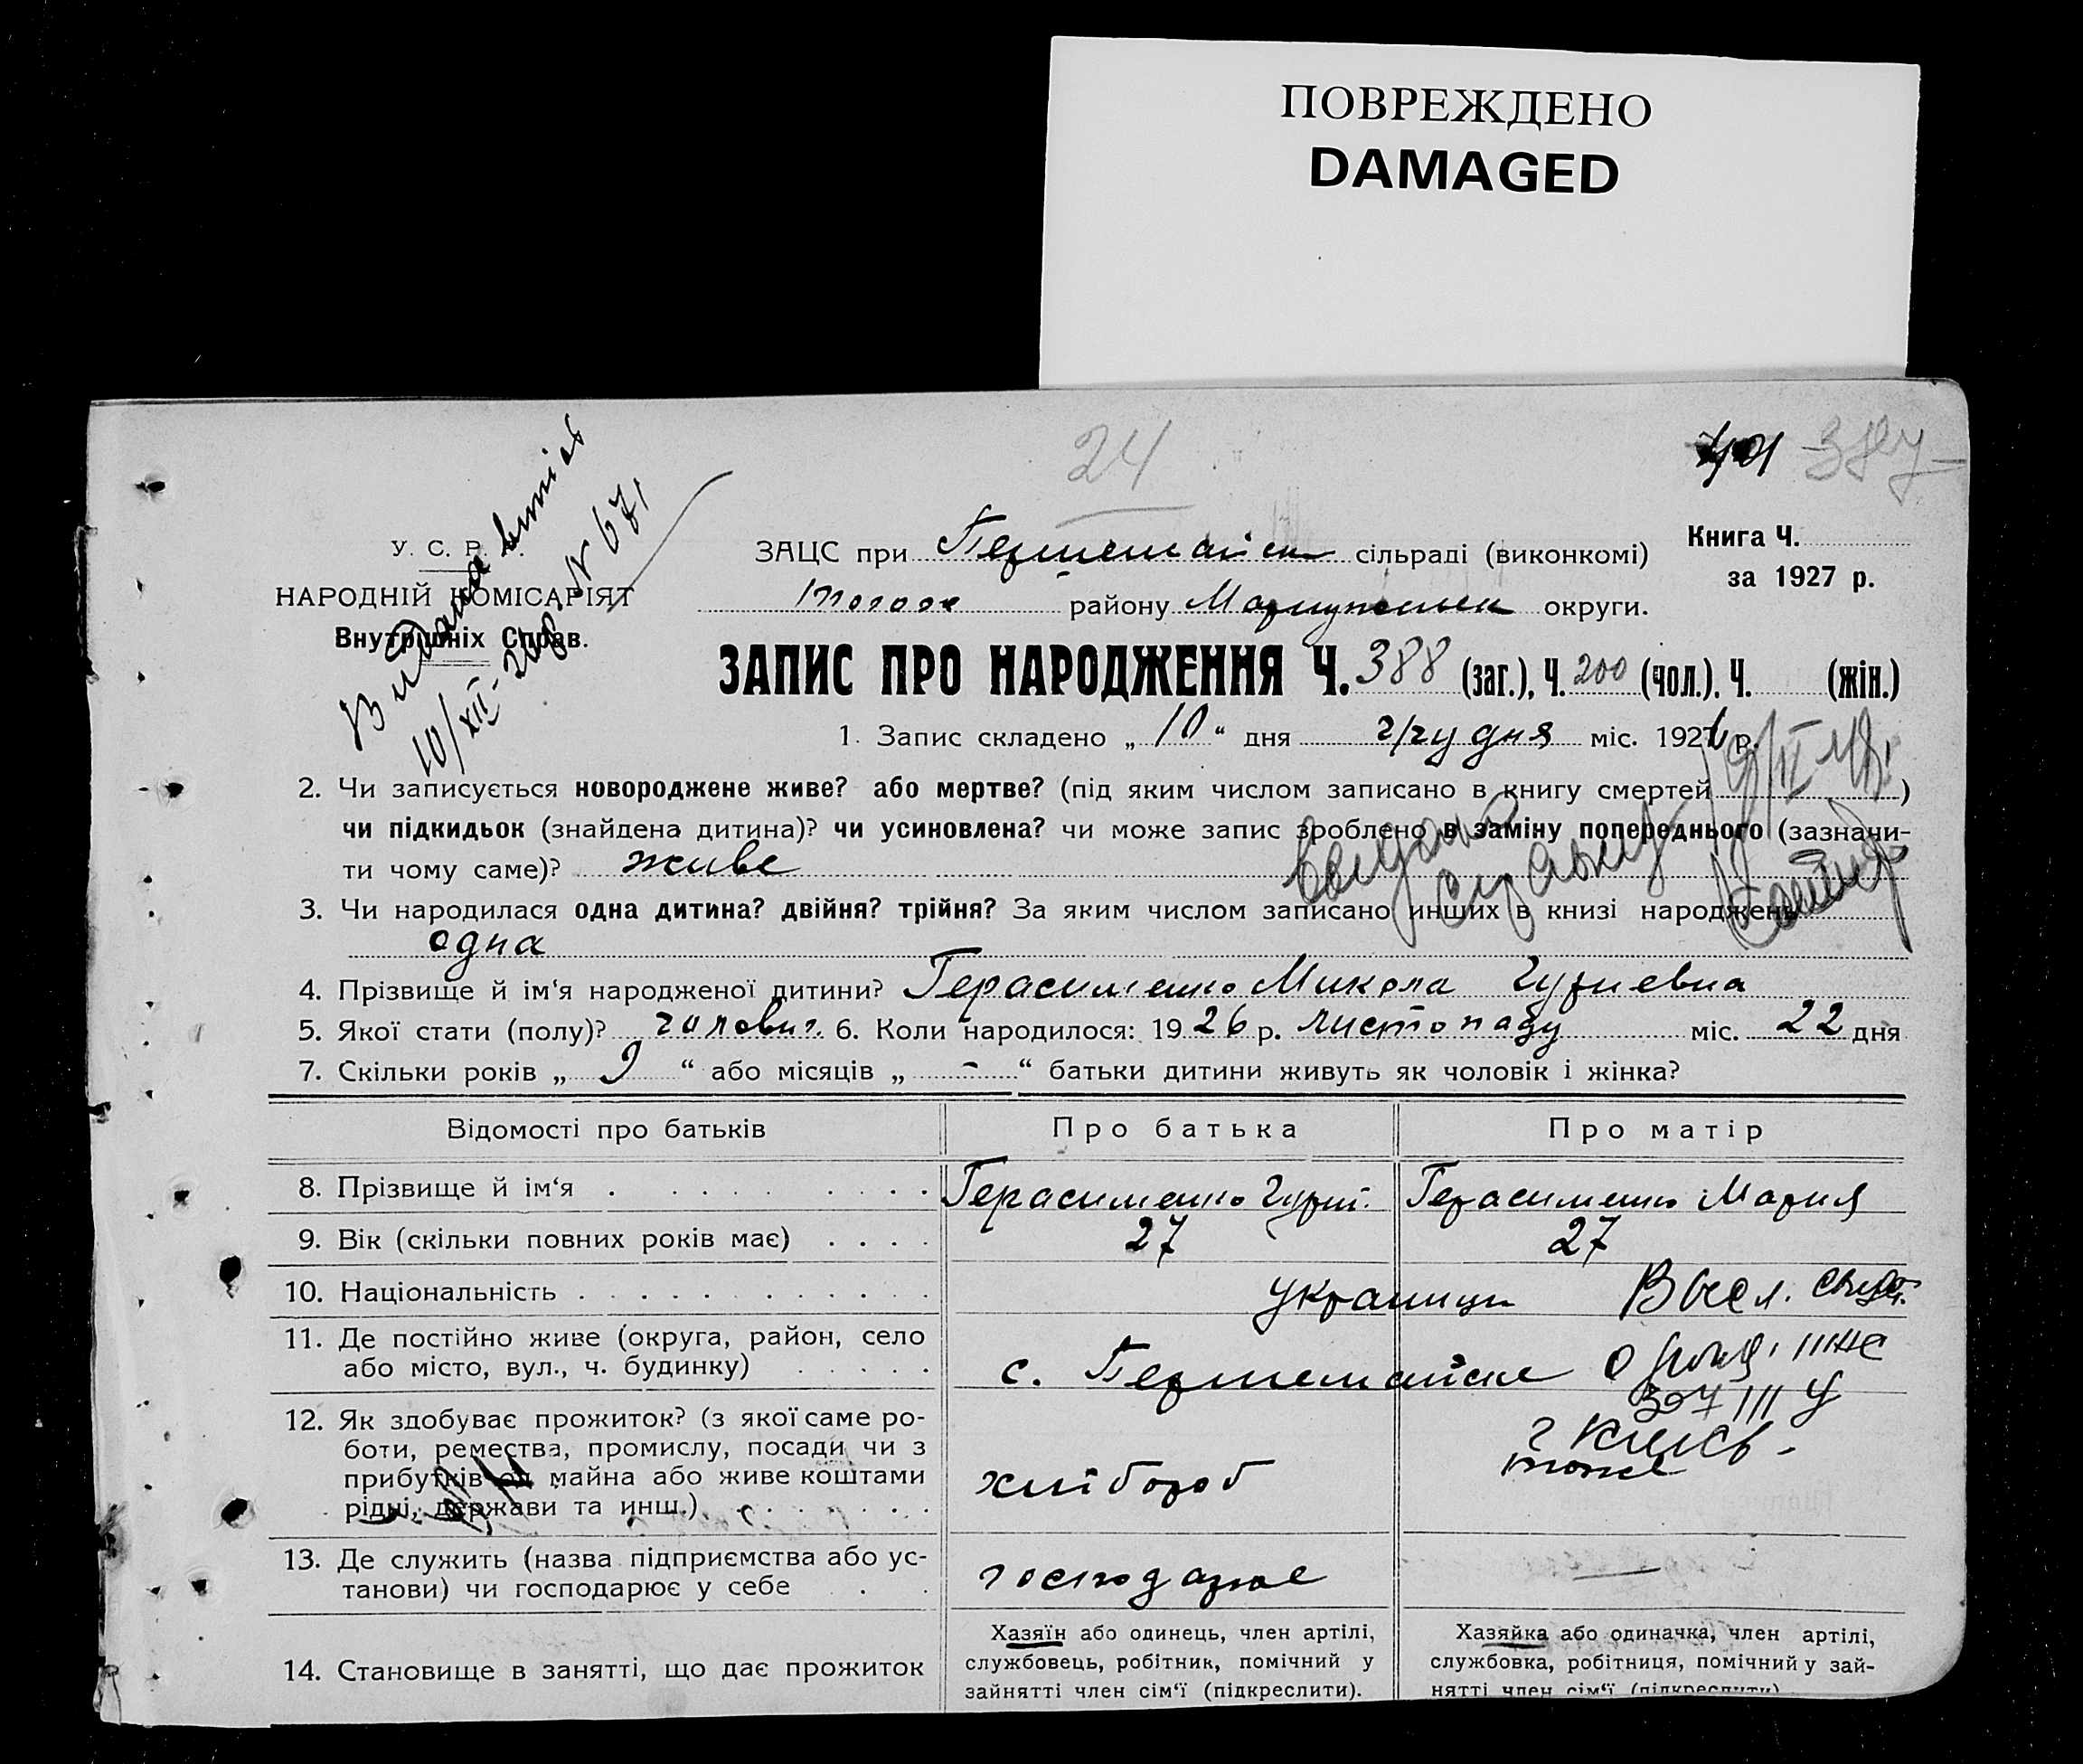 ПОВРЕЖДЕНО
DAMAGED
24
387
Видана виписъ
10/XII-26р. N 671
У. С. Р. Р.
НАРОДНІЙ КОМІСАРІЯТ
Внутрішніх Справ.
ЗАЦС при Першемайськ сільраді (виконкомі)
того ж району Маріупольськ округи.
Книга Ч.
за 1927 р.
ЗАПИС ПРО НАРОДЖЕННЯ Ч. 388 (заг.), Ч. 200 (чол.). Ч. (жін.)
1. Запис складено „ 10 “ дня грудня міс. 1926 р.
2. Чи записується новороджене живе? або мертве? (під яким числом записано в книгу смертей )
чи підкидьок (знайдена дитина)? чи усиновлена? чи може запис зроблено в заміну попереднього (зазначи-
ти чому саме)? живе
3. Чи народилася одна дитина? двійня? трійня? За яким числом записано инших в книзі народжень
одна
4. Прізвище й ім‘я народженої дитини? Герасименко Микола Гуриевич
5. Якої стати (полу)? чоловіч. 6. Коли народилося: 1926 р. листопаду міс. 22 дня
7. Скільки років „ 9 “ або місяців „ - “ батьки дитини живуть як чоловік і жінка?
Відомості про батьків Про батька Про матір
8. Прізвище й ім‘я Герасименко Гурій. Герасименко Мария
9. Вік (скільки повних років має) 27 27
10. Національність українци
Высл. свид.
11. Де постійно живе (округа, район, село
або місто, вул., ч. будинку) с. Першемайське
о рожд.
12. Як здобуває прожиток? (з якої саме ро-
боти, ремества, промислу, посади чи з
прибутків од майна або живе коштами
рідні, держави та инш.) хлібороб
г Киев
тоже
13. Де служить (назва підприємства або ус-
танови) чи господарює у себе господарює —
14. Становище в занятті, що дає прожиток
Хазяїн або одинець, член артілі,
службовець, робітник, помічний у
зайнятті член сім‘ї (підкреслити).
Хазяйка або одиначка, член артілі,
службовка, робітниця, помічний у зай-
нятті член сім‘ї (підкреслити)